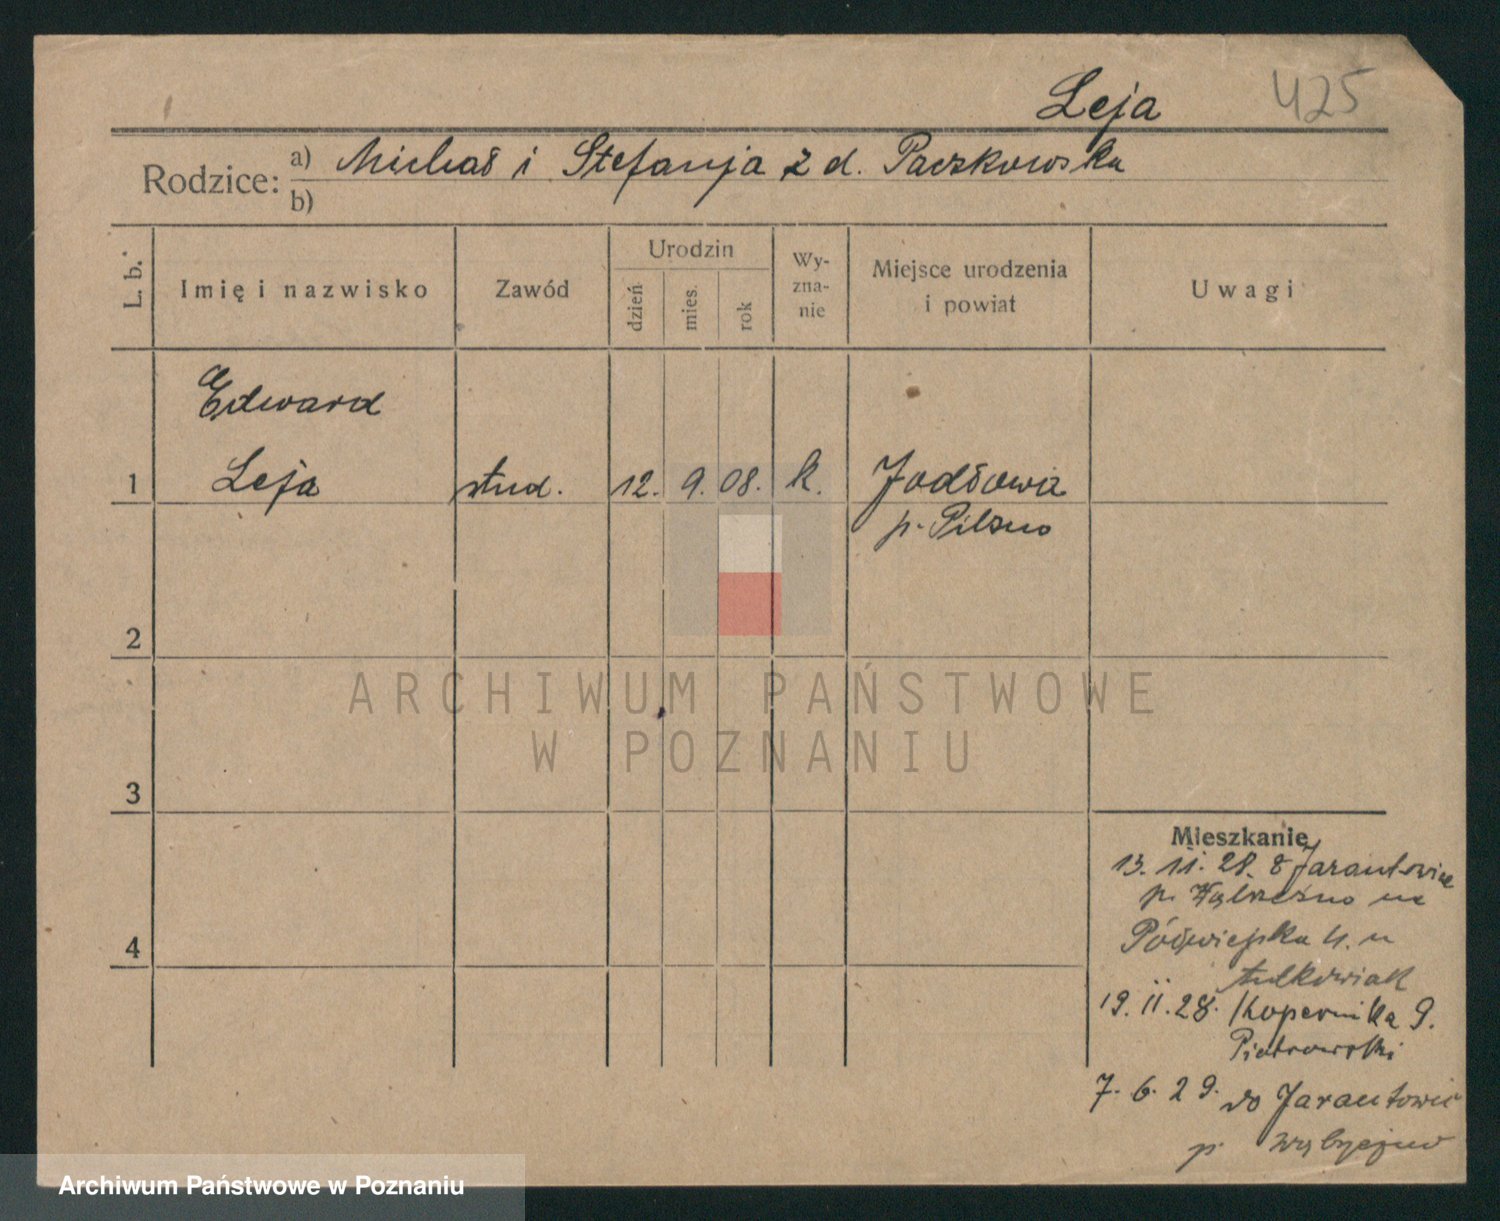 Leja 425
Rodzice: a) Michał i Stefanja z d. Paczkowska
b)
L. b.
Imię i nazwisko
Zawód
Urodzin
dzień
mies.
rok
Wy-
zna-
nie
Miejsce urodzenia
i powiat
Uwagi
Edward
1 Leja stud. 12. 9. 08. k. Jodłowa
p. Pilzno
2
3
4
ARCHIWUM PAŃSTWOWE
W POZNANIU
Mieszkanie
13. 11. 28. z Jarantowice
p. Wąbrzeźno na
Półwiejska 4. u
19. 11. 28. Kopernika 9.
Piotrowski
7. 6. 29. do Jarantowic
p.
Archiwum Państwowe w Poznaniu